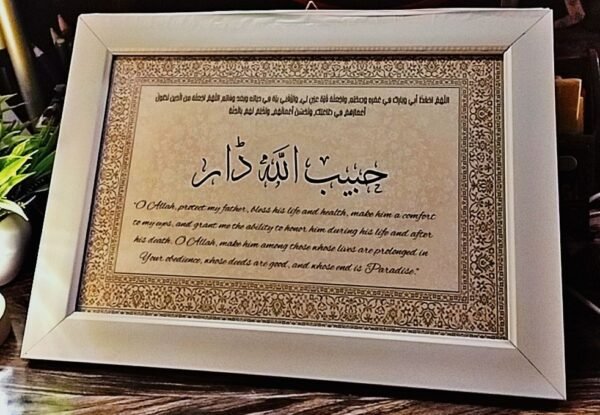 اللهم احفظ أبي وبارك في عمره وصحته واجعله قرة عين لي وارزقني بره في حياته وبعد وفاته اللهم اجعله من الذين تطول
أعمارهم في طاعتك وتحسن أعمالهم وتختم لهم بالجنة
حبيب اللہ ڈار
"O Allah, protect my father, bless his life and health, make him a comfort
to my eyes, and grant me the ability to honor him during his life and after
his death. O Allah, make him among those whose lives are prolonged in
Your obedience, whose deeds are good, and whose end is Paradise."